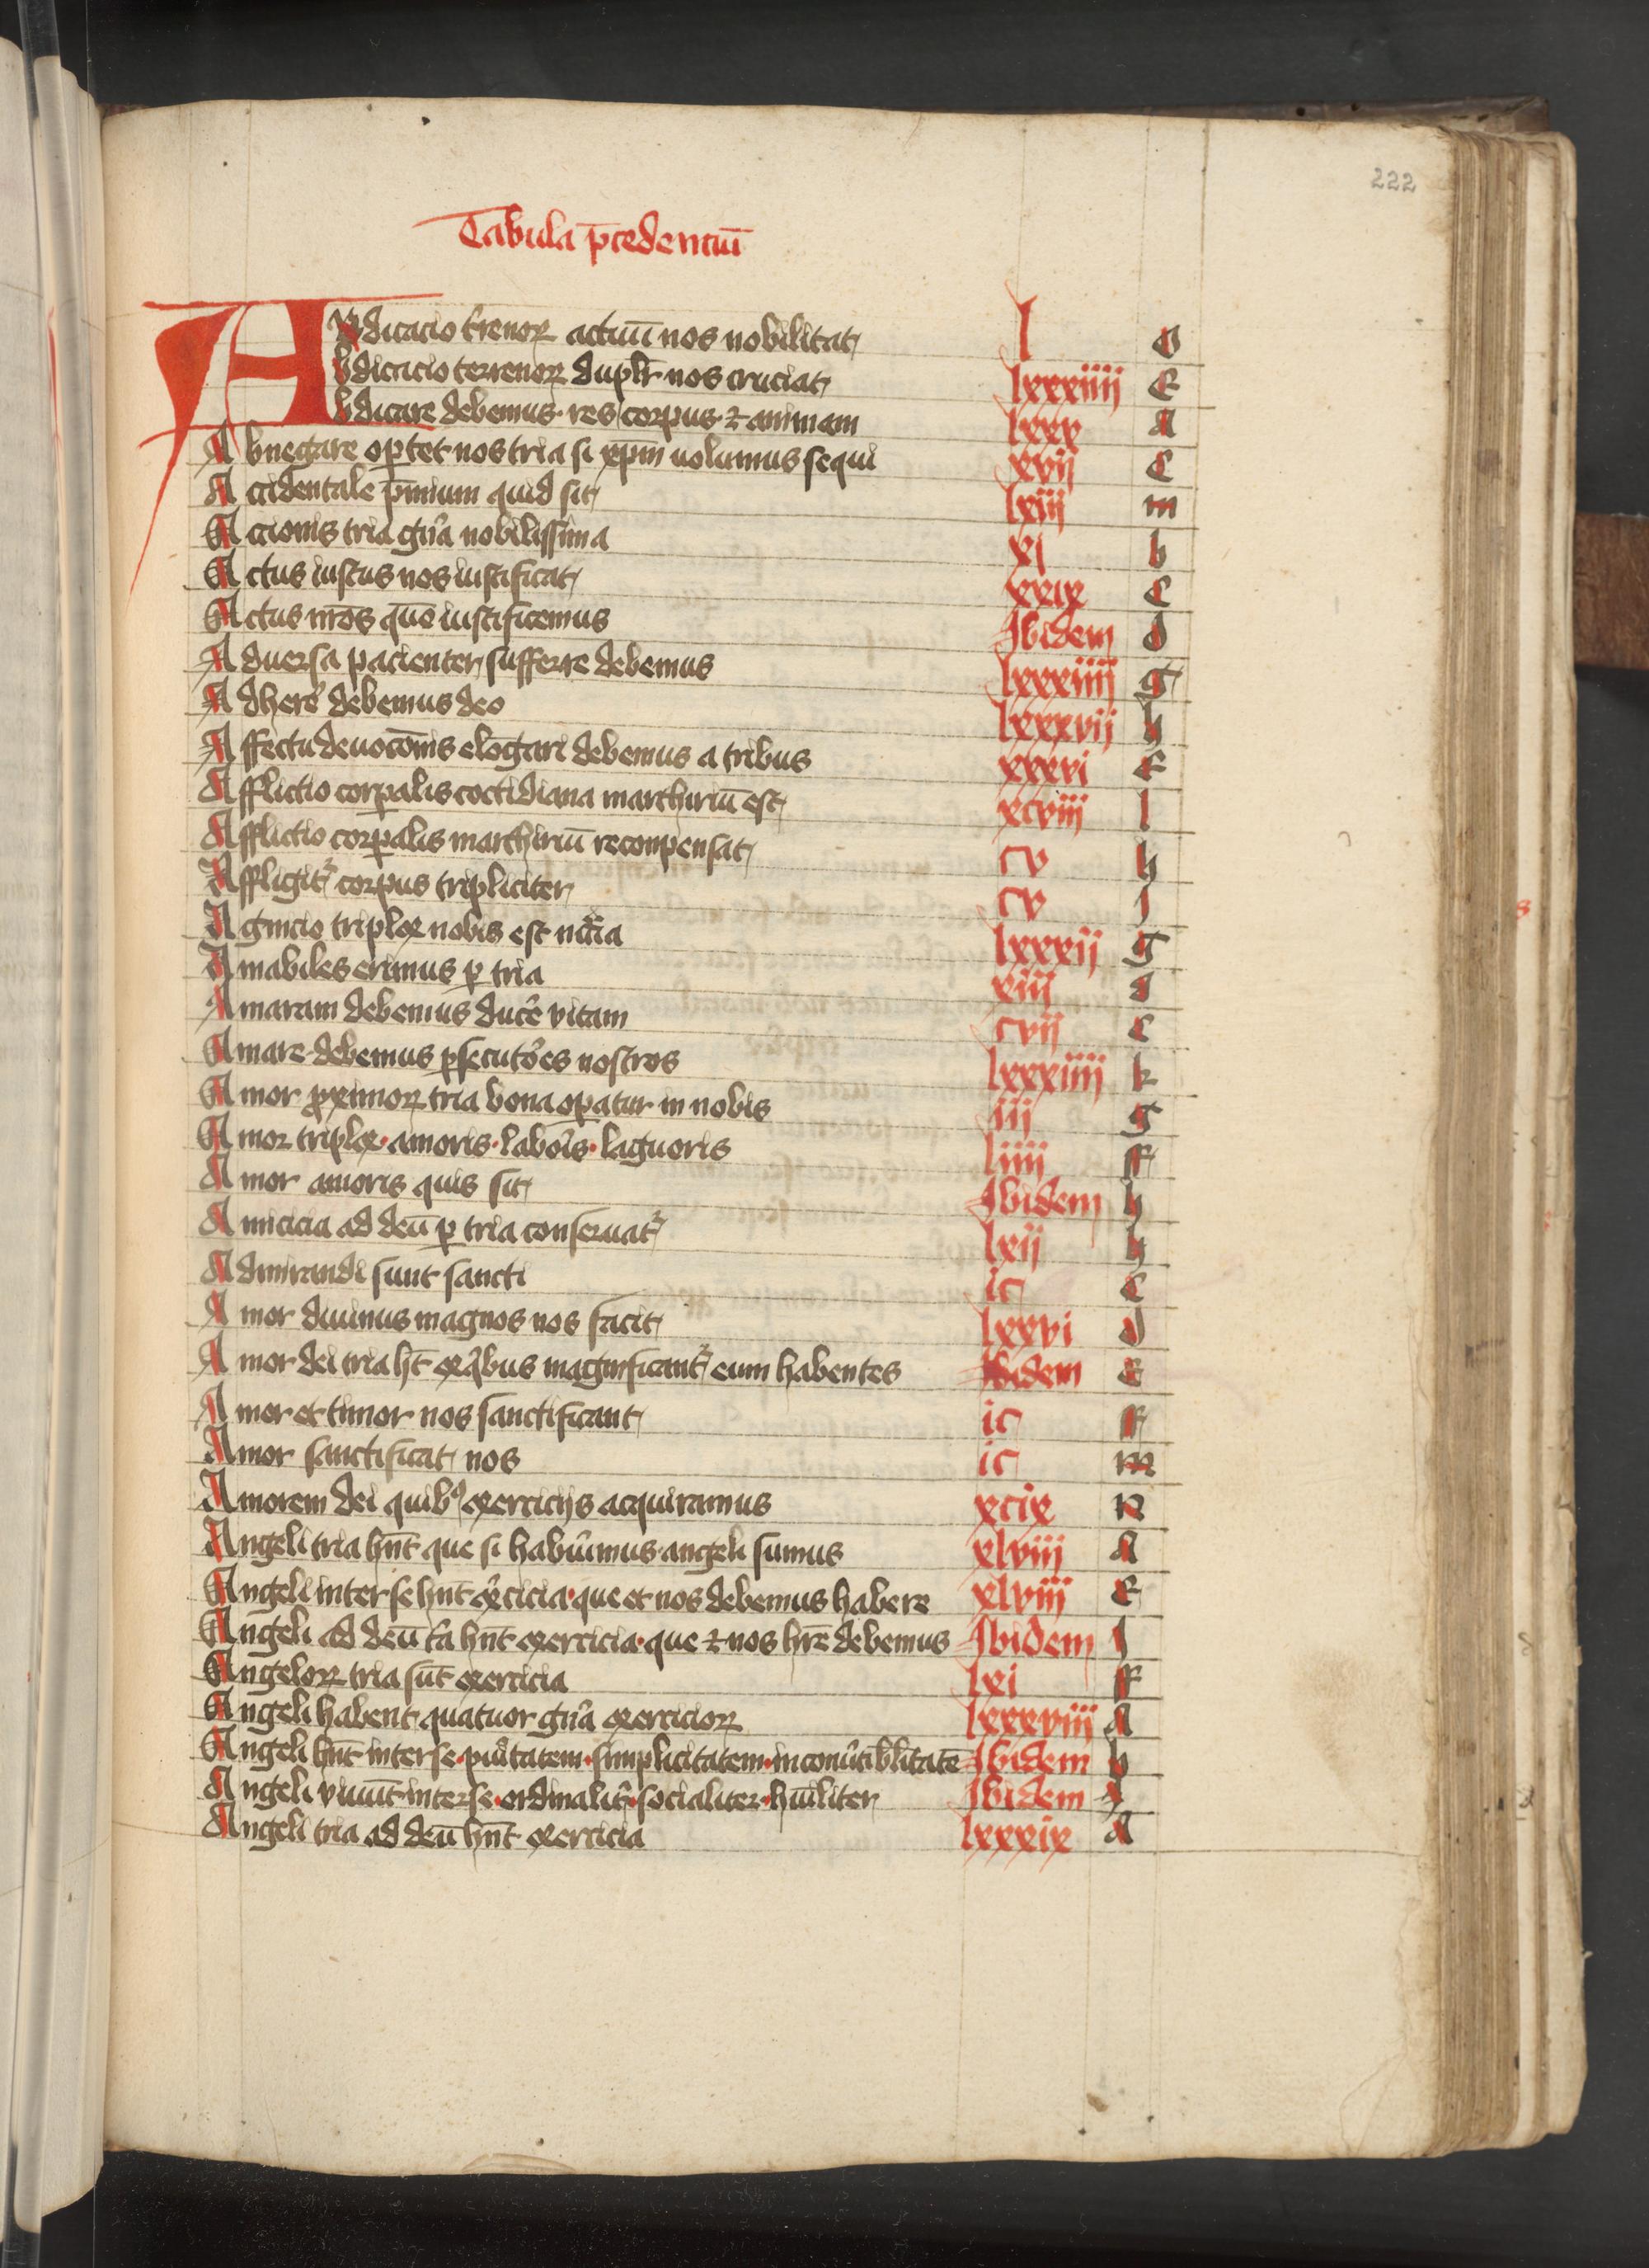 222
Tabula p̄cedenciū
ABdicacio t̄renoꝝ actuū nos nobilitat l c
Abdicacio terrenoꝝ duplr̄ nos cruciat lxxxiiii e
Abdicare debemus res corpus ⁊ animam lxxx a
Abnegare op̄tet nos tria si xp̄m uolumus sequi xvij c
Accidentale p̄mium quid sit lxiij m
Accionis tria gn̄a nobilissima xi b
Actus iustus nos iustificat xxix c
Actus nr̄os quō iustificemus Ibidem d
Aduersa pacienter sufferre debemus lxxxiiii g
Adherē debemus deo lxxxvij h
Affectu deuocōnis elōgari debemus a tribus xxxvi e
Afflictio corꝑalis coctidiana marthiriū est xcviij l
Afflictio corꝑalis marthiriū reconpensat cv h
Affligit᷑ corpus tripliciter cv i
Agnicio triplex nobis est nc̄cīa lxxxij g
Amabiles erimus ꝑ tria xiij d
Amaram debemus ducē vitam cvij c
Amare debemus ꝑsecutōes nostros lxxxiiii k
Amor ꝓximoꝝ tria bona oꝑatur in nobis iij g
Amor triplex · amoris · labōis · laguoris liiii ff
Amor amoris quis sit Ibidem h
Amicicia ad deū ꝑ tria conseruat᷑ lxij h
Admirandi sunt sancti ic c
Amor diuinus magnos nos facit lxxvi d
Amor dei tria ht̄ ex q̄bus magnificant᷑ eum habentes Ibidem e
Amor et timor nos sanctificant ic ff
Amor sanctificat nos ic m
Amorem dei quibꝰ exercicijs acquiramus xcix n
Angeli tria hn̄t que si habūimus angeli sumus xlviij a
Angeli inter se hn̄t ex̄cicia · que et nos debemus habere xlviij e
Angeli ad deū t̄a hn̄t exercicia · que ⁊ nos hr̄e debemus Ibidem i
Angeloꝝ tria sūt exercicia lxi ff
Angeli habent quatuor gn̄a exercicioꝝ lxxxviij a
Angeli hn̄t inter se · puītatem · simplicitatem · inconūtiblitatē Ibidem h
Angeli viuūt inter se · ordinalit᷑ · socialiter · hūiliter Ibidem i
Angeli tria ad deū hn̄t exercicia lxxxix a